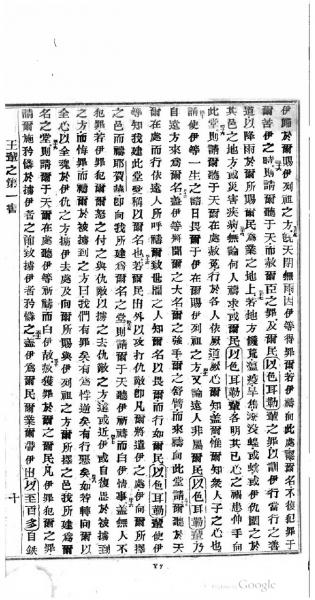 伊歸於爾賜伊列祖之方旣天閉無雨因伊等得罪爾若伊禱向此處籲爾名不復犯罪于
爾苦伊之時則請爾聽于天而赦爾臣之罪及爾民以色耳勒輩之罪以訓伊行當行之善
道以降雨於爾所賜爾民爲業之地上若地方饑荒瘟疫旱 蝗或 或伊仇圍之於
其邑之地方或災害疾病無論何人禱求或爾民以色耳勒輩各明其已心之禍患伸手向
此堂則請爾于天爾在處聽赦免行於各人依厥道厥心爾知蓋爾惟爾知衆人子之心也
請使伊等一生之時日畏爾于伊在爾賜伊列祖之方又論遠人非屬爾民以色耳勒輩乃
自遠方來爲爾名蓋伊等將聞爾之大名爾之強手爾之舒臂而來禱向此堂請爾聽於天
爾在處而行依遠人所呼禱致世間之人知爾名以畏爾而行如爾民以色耳勒輩使伊
等知我建此堂 稱以爾名也若爾民出外以攻打仇敵卽凡爾將遣伊之處伊禱向爾所擇
之邑而禱耶賀華卽向我所建爲爾名之堂則請爾于天聽伊祈禱而白伊情事蓋無人不
犯罪若伊罪犯爾爾怒之付之與仇敵以擄之去仇敵之方遠或近伊或自復思於被擄到
之方而悔罪而禱爾於被擄到之方曰我們有罪矣有爲悖逆矣有行惡矣如若轉向爾以
全心以全魂於伊仇之方擄伊去處及向爾所賜與伊列祖之方爾所擇之邑我所建爲爾
名之堂則請爾于天爾在處聽伊等祈禱而白伊故赦獲罪於爾之爾民凡伊罪犯爾之罪
請爾施矜憐於擄伊者之 致擄伊者矜憐之蓋伊爲爾民爾業爾帶伊出以至百多自鐵
王輩之第一書
十
Google